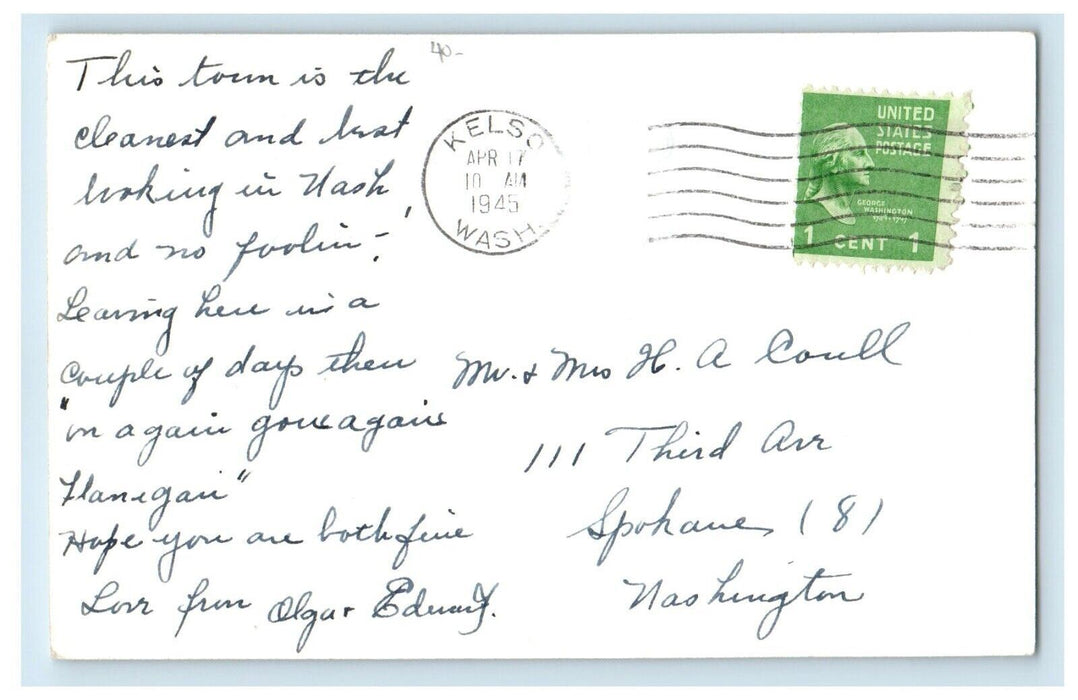 40-
This town is the
cleanest and best
looking in Wash,
and no foolin'-
Leaving here in a
couple of days then
"on again gone again
Flanegan"
Hope you are both fine
Love from Olga + Edward J.
KELSO
APR 17
10 AM
1945
WASH.
UNITED
STATES
POSTAGE
GEORGE
WASHINGTON
1789-1797
1 CENT 1
Mr. + Mrs H. A Coull
111 Third Ave
Spokane, (8)
Washington